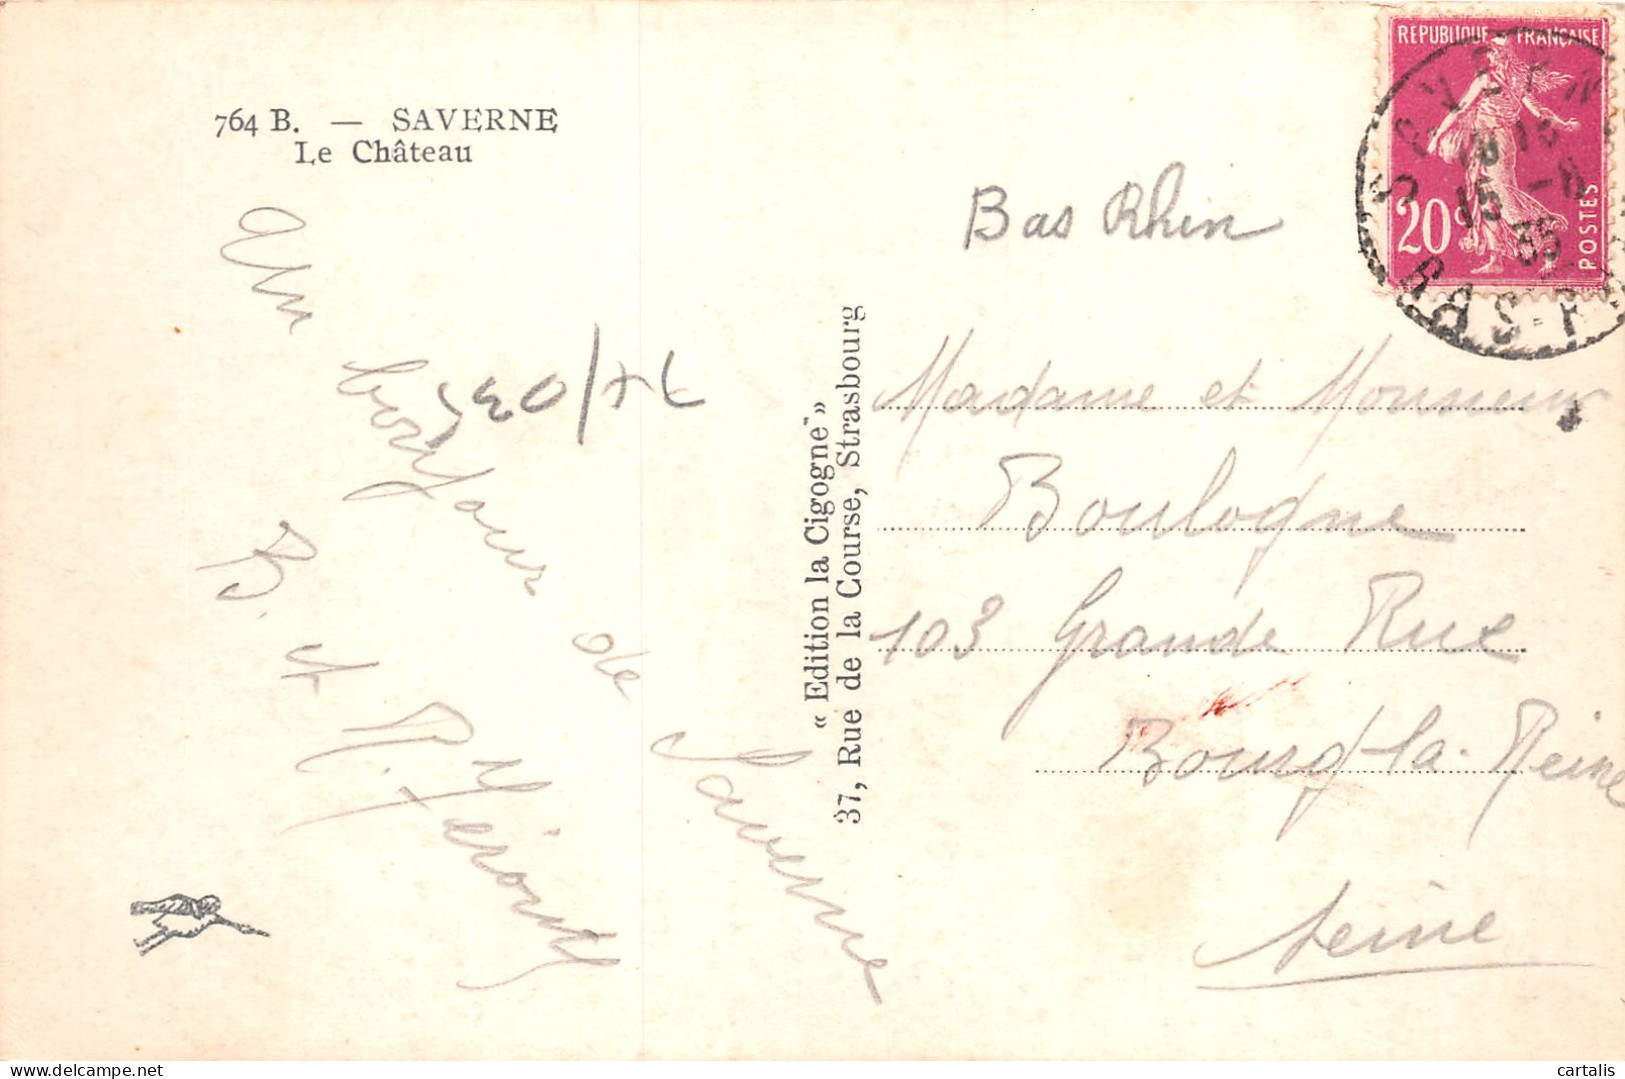 764 B. — SAVERNE
Le Château
Un bonjour de Saverne
B. et R.
« Edition la Cigogne »
37, Rue de la Course, Strasbourg
Bas Rhin
REPUBLIQUE FRANÇAISE
20c
POSTES
15 -8
35
BAS-R
Madame et Monsieur
Boulogne
103 Grande Rue
Bourg-la-Reine
Seine
cartalis
delcampe.net